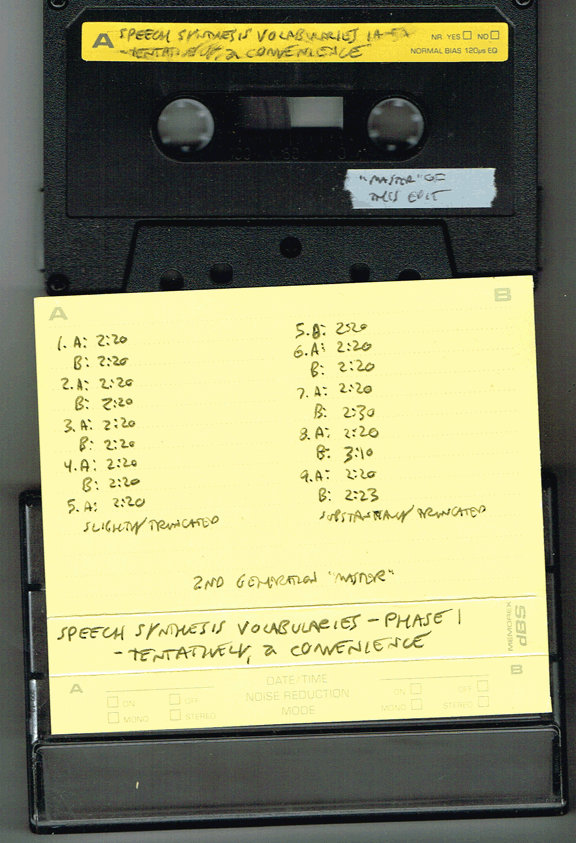 A SPEECH SYNTHESIS VOCABULARIES 1A-5A
-TENTATIVELY, A CONVENIENCE
NR YES NO
NORMAL BIAS 120µs EQ
"MASTER" OF
THIS EDIT
A
B
1. A: 2:20
B: 2:20
2. A: 2:20
B: 2:20
3. A: 2:20
B: 2:20
4. A: 2:20
B: 2:20
5. A: 2:20
SLIGHTLY TRUNCATED
5. B: 2:20
6. A: 2:20
B: 2:20
7. A: 2:20
B: 2:30
8. A: 2:20
B: 3:10
9. A: 2:20
B: 2:23
SUBSTANTIALLY TRUNCATED
2ND GENERATION "MASTER"
SPEECH SYNTHESIS VOCABULARIES - PHASE 1
-TENTATIVELY, A CONVENIENCE
MEMOREX
dBS
A
B
DATE/TIME
NOISE REDUCTION
MODE
ON OFF
MONO STEREO
ON OFF
MONO STEREO